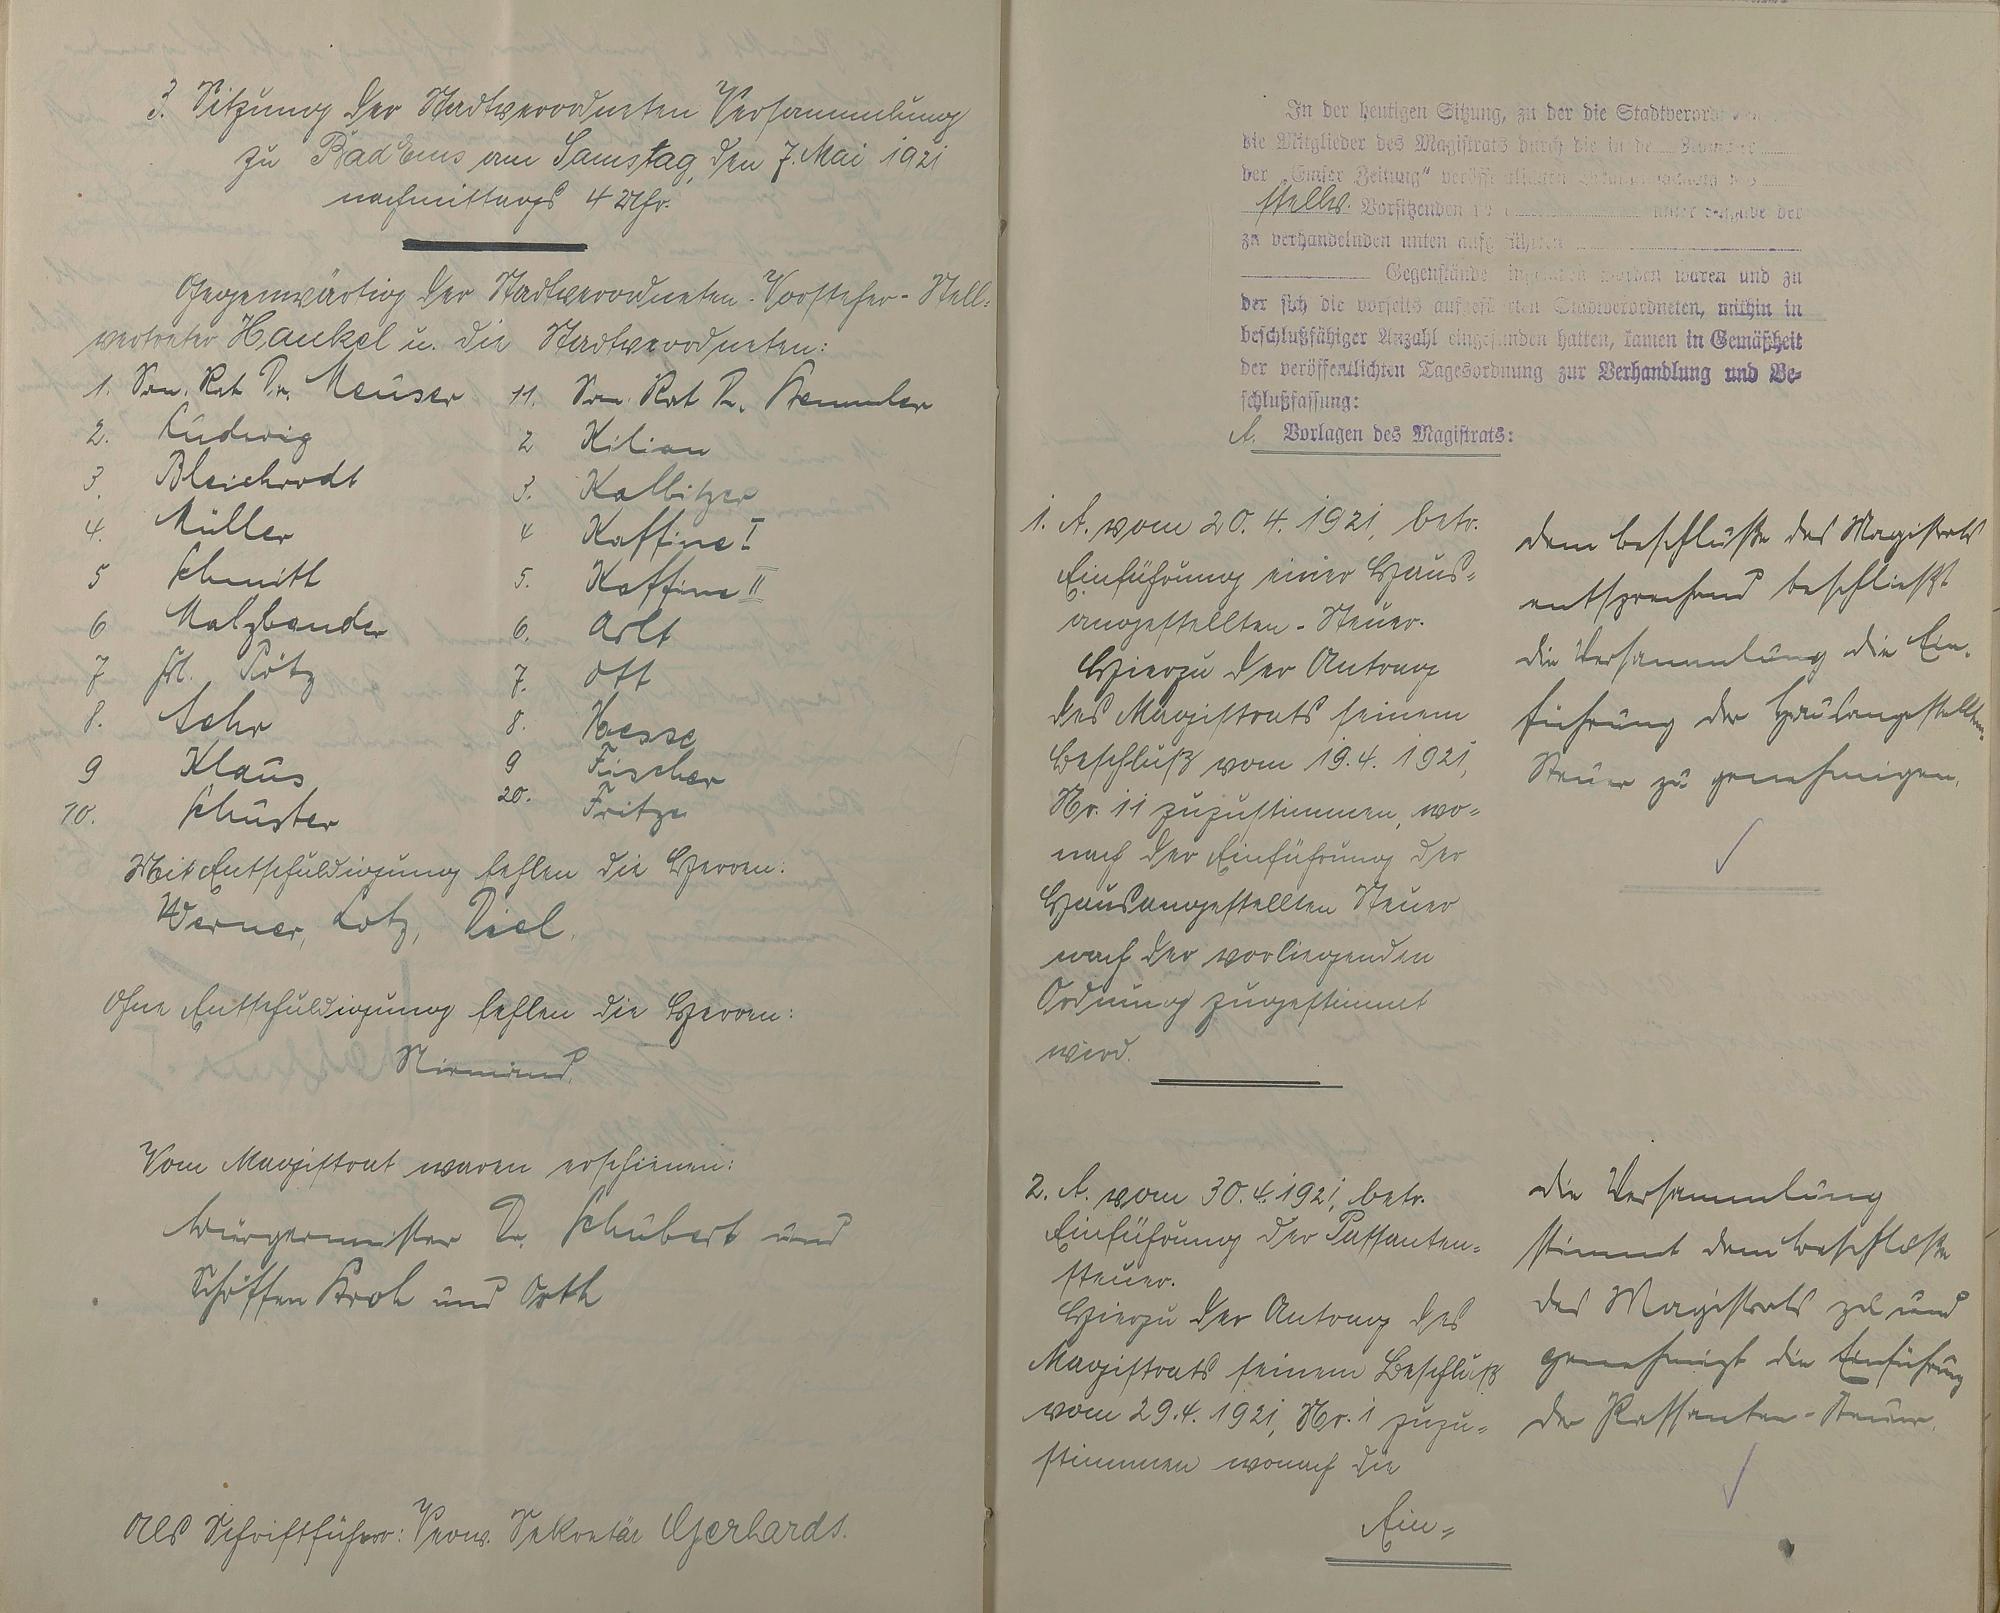 3. Sitzung der Stadtverordneten Versammlung
zu Bad Ems am Samstag, den 7. Mai 1921
nachmittags 4 Uhr.
Gegenwärtig der Stadtverordneten-Vorsteher-Stell-
vertreter Hankel u. die Stadtverordneten:
1. San. Rat Dr. Meuser
2. Ludwig
3. Bleichrodt
4. Müller
5 Schmitt
6 Malzbender
7 Frl. Pötz
8. Sehr
9 Klaus
10. Schuster
11. San. Rat Dr. Stemmler
2 Kilian
3. Kalbitzer
4 Kaffine I
5. Kaffine II
6. Arlt
7. Ott
8. Hesse
9 Fischer
20. Fritze
Mit Entschuldigung fehlen die Herren:
Werner, Lotz, Diel.
Ohne Entschuldigung fehlen die Herren:
Niemand.
Vom Magistrat waren erschienen:
Bürgermeister Dr. Schubert und
Schöffen Kroh und Orth
Als Schriftführer: Verw. Sekretär Gerhards.
In der heutigen Sitzung, zu der die Stadtverordneten
die Mitglieder des Magistrats durch die in der Nummer
der „Emser Zeitung“ veröffentlichten
stellv. Vorsitzenden unter Angabe der
zu verhandelnden unten aufgeführten
Gegenstände eingeladen worden waren und zu
der sich die vorseits aufgeführten Stadtverordneten, mithin in
beschlußfähiger Anzahl eingefunden hatten, kamen in Gemäßheit
der veröffentlichten Tagesordnung zur Verhandlung und Be-
schlußfassung:
A. Vorlagen des Magistrats:
1. A. vom 20. 4. 1921, betr.
Einführung einer Haus-
angestellten-Steuer.
Hierzu der Antrag
des Magistrats seinem
Beschluß vom 19. 4. 1921,
Nr. 11 zuzustimmen, wo-
nach der Einführung der
Hausangestellten Steuer
nach der vorliegenden
Ordnung zugestimmt
wird.
dem Beschlusse des Magistrats
entsprechend beschließt
die Versammlung die Ein-
führung der Hausangestellten-
Steuer zu genehmigen.
2. A. vom 30. 4. 1921, betr.
Einführung der Passanten-
steuer.
Hierzu der Antrag des
Magistrats seinem Beschluß
vom 29. 4. 1921, Nr. 1 zuzu-
stimmen wonach die
Ein-
die Versammlung
stimmt dem Beschlusse
des Magistrats zu und
genehmigt die Einführung
der Passanten-Steuer.